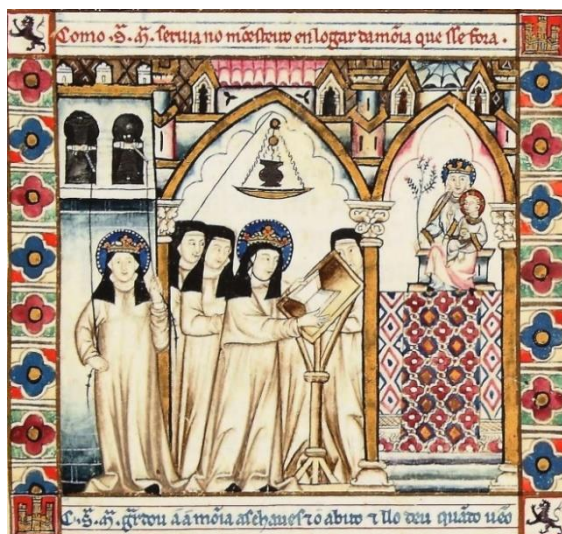 Como .S. M. seruia no mōesteiro en logar da mōia que sse fora.
C. S. M. gr̄dou áá mōia as chaues ⁊ o abito ⁊ llo deu quādo uēo